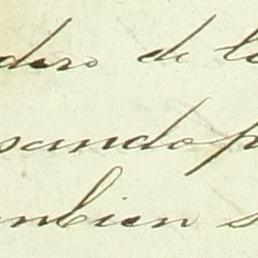 dero de la
sando p
ambien s